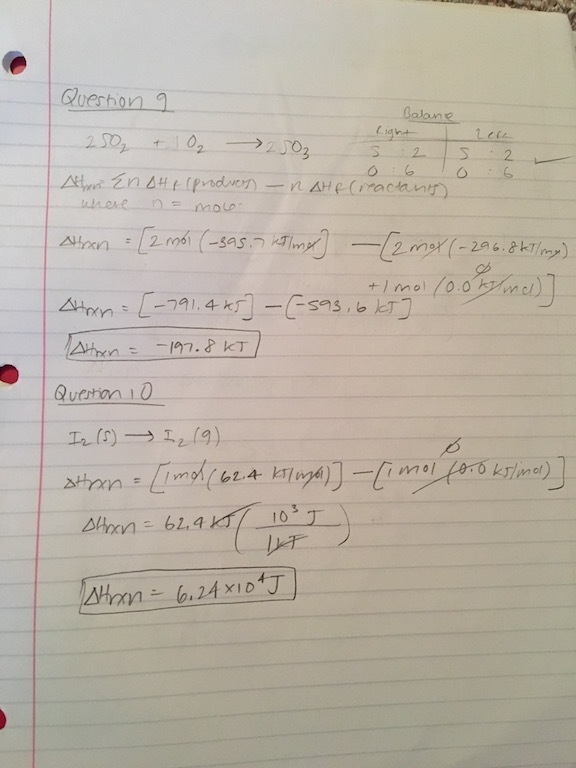 Question 9
Balance
Right Left
2SO₂ + 1O₂ → 2SO₃
S : 2 S : 2
O : 6 O : 6
ΔHrxn = Σn ΔHf (products) — n ΔHf (reactants)
where n = moles
ΔHrxn = [2 mol (-395.7 kJ/mol)] — [2 mol (-296.8 kJ/mol)
+ 1 mol (0.0 kJ/mol)]
ΔHrxn = [-791.4 kJ] — [-593.6 kJ]
ΔHrxn = -197.8 kJ
Question 10
I₂ (s) → I₂ (g)
ΔHrxn = [1 mol (62.4 kJ/mol)] — [1 mol (0.0 kJ/mol)]
ΔHrxn = 62.4 kJ (10³ J / 1 kJ)
ΔHrxn = 6.24 x 10⁴ J